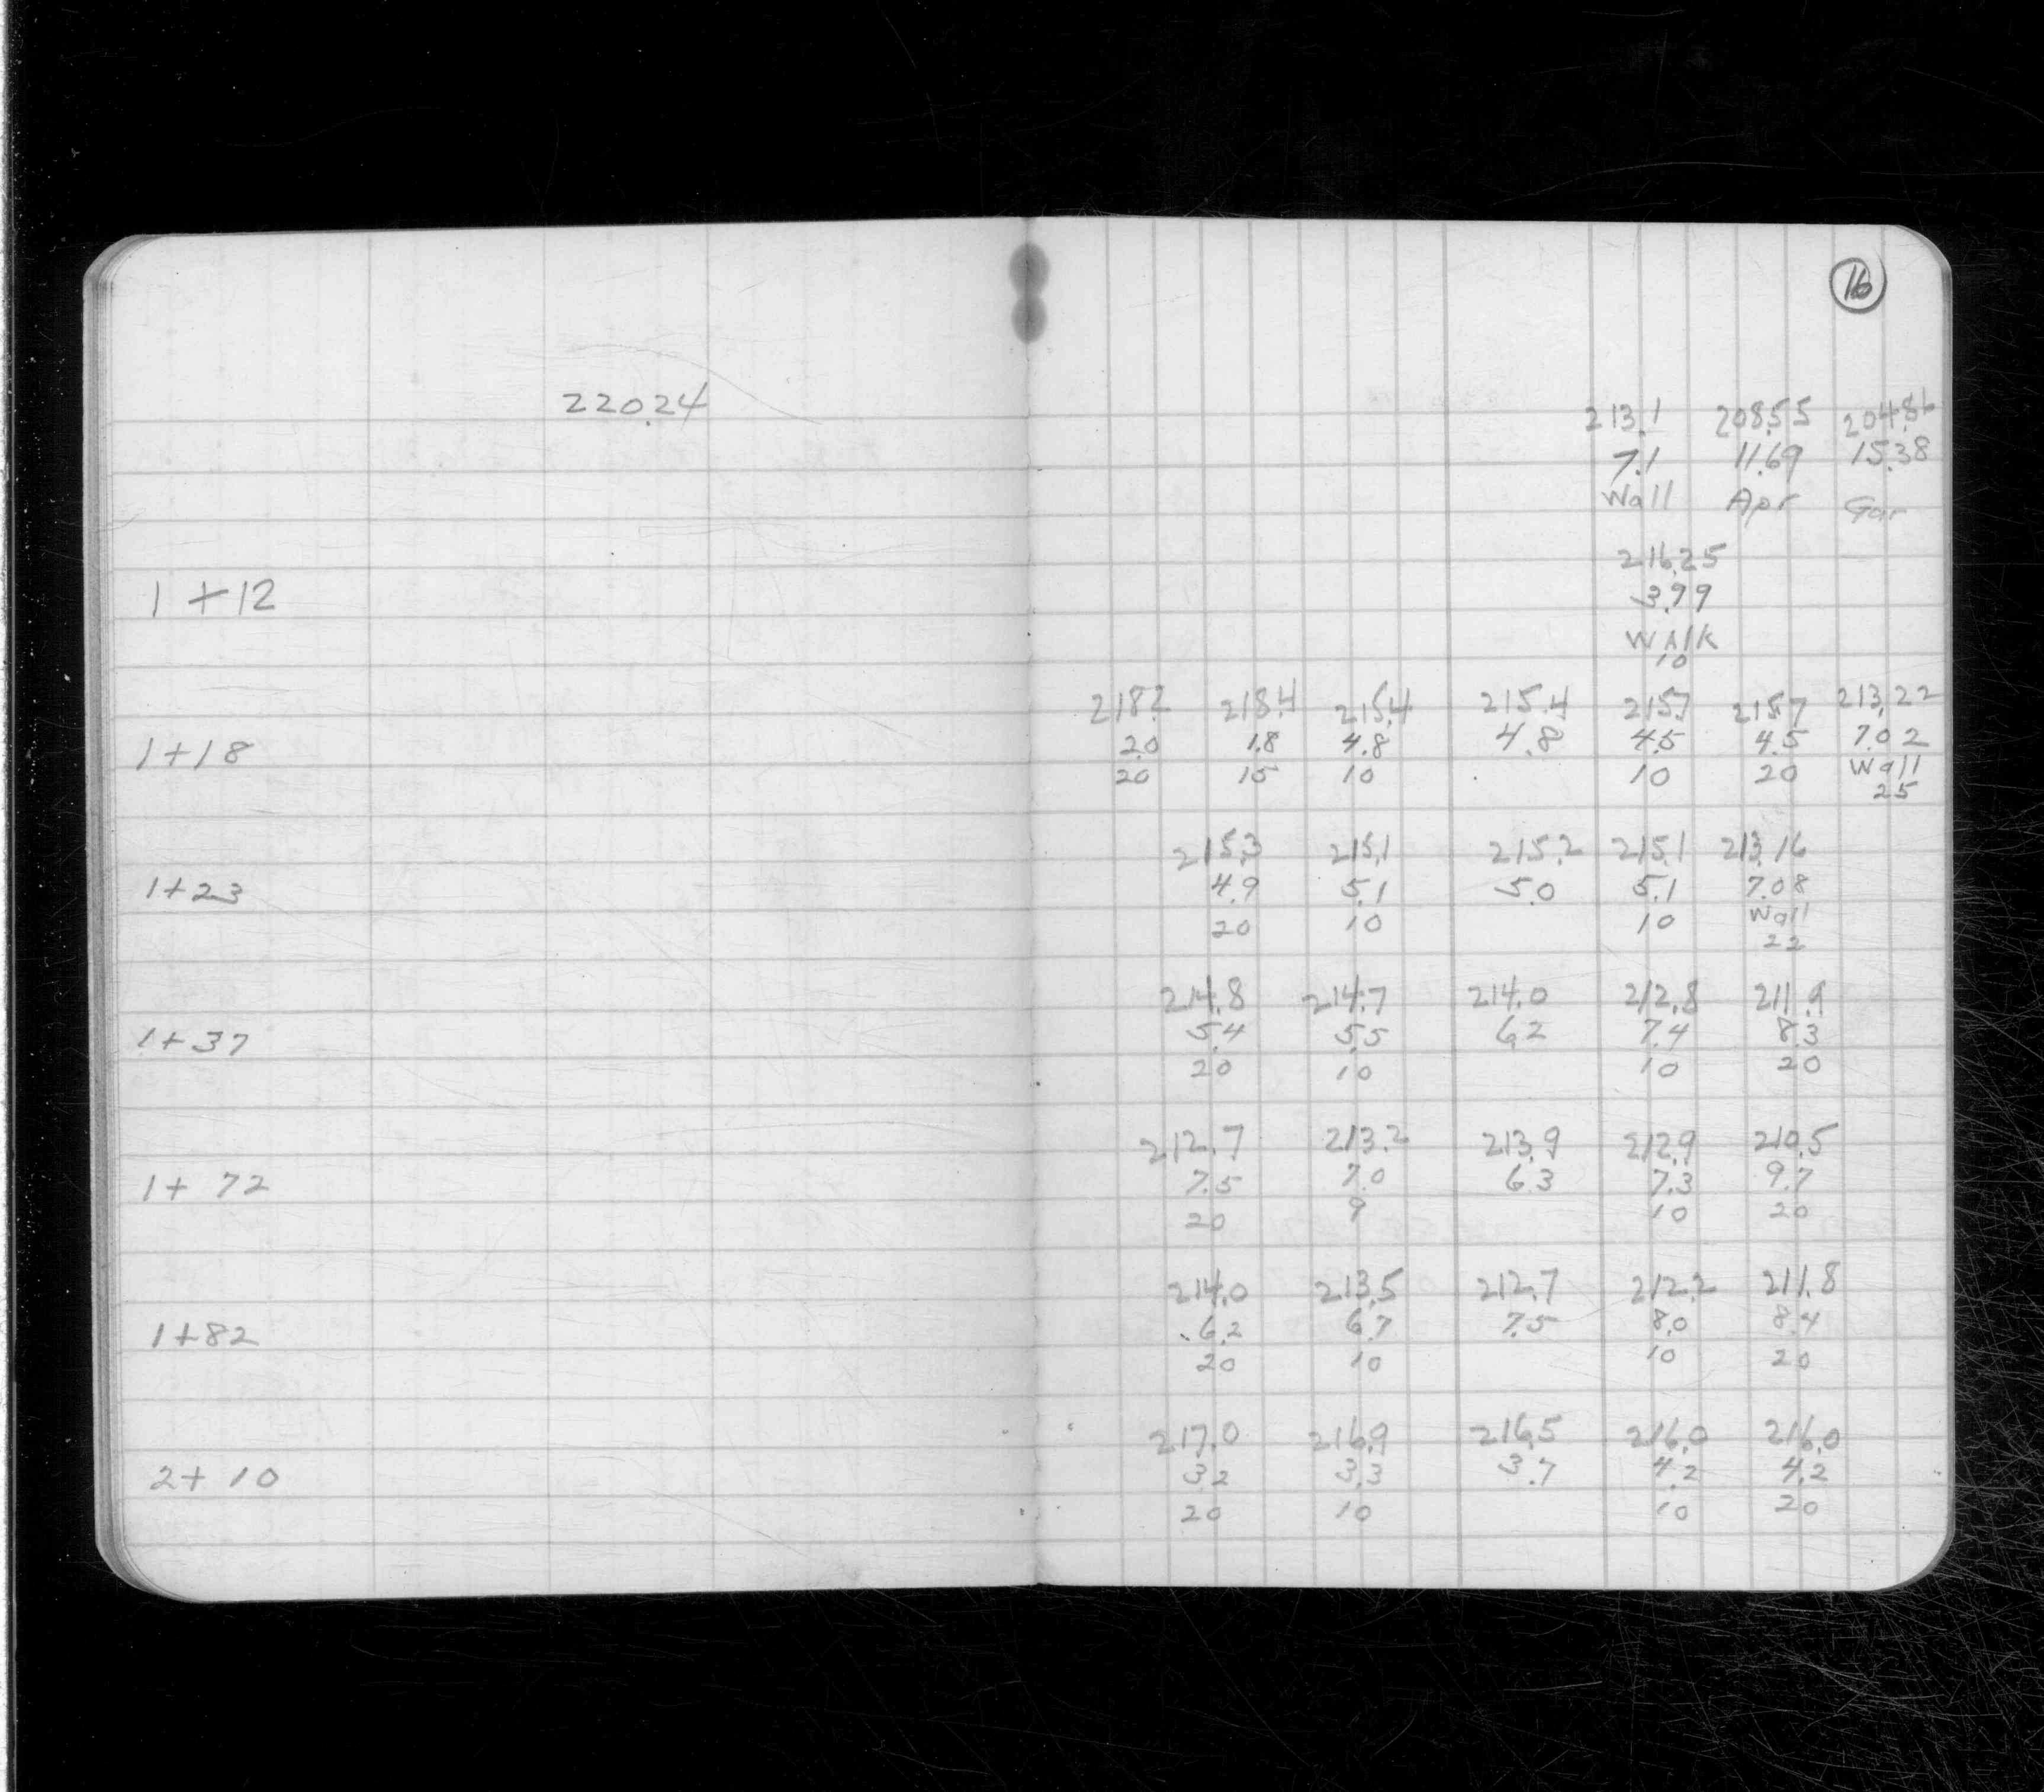 16
220.24
213.1 208.55 204.86
7.1 11.69 15.38
Wall Apr Gar
216.25
1+12 3.99
WAlk
10
218.2 218.4 215.4 215.4 215.7 215.7 213.22
1+18 2.0 1.8 4.8 4.8 4.5 4.5 7.02
20 15 10 10 20 Wall
25
215.3 215.1 215.2 215.1 213.16
1+23 4.9 5.1 5.0 5.1 7.08
20 10 10 Wall
22
214.8 214.7 214.0 212.8 211.9
1+37 5.4 5.5 6.2 7.4 8.3
20 10 10 20
212.7 213.2 213.9 212.9 210.5
1+72 7.5 7.0 6.3 7.3 9.7
20 9 10 20
214.0 213.5 212.7 212.2 211.8
1+82 6.2 6.7 7.5 8.0 8.4
20 10 10 20
217.0 216.9 216.5 216.0 216.0
2+10 3.2 3.3 3.7 4.2 4.2
20 10 10 20